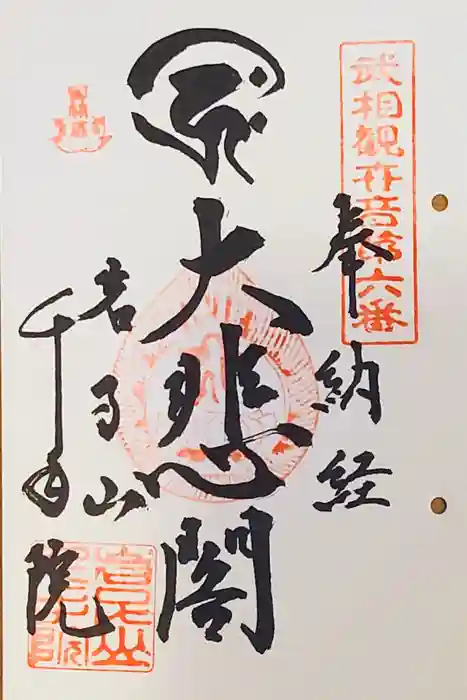 武相観世音第六番
奉納経
大悲閣
岩子山
千手院